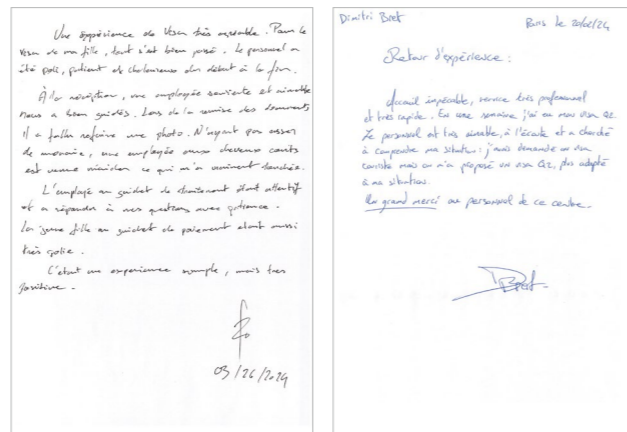 Une expérience de Visa très agréable. Pour le
Visa de ma fille, tout s'est bien passé. Le personnel a
été poli, patient et chaleureux du début à la fin.
À la réception, une employée souriante et aimable
nous a bien guidés. Lors de la remise des documents
il a fallu refaire une photo. N'ayant pas assez
de monnaie, une employée aux cheveux courts
est venue m'aider ce qui m'a vraiment touchée.
L'employé au guichet de traitement était attentif
et a répondu à nos questions avec patience.
La jeune fille au guichet de paiement était aussi
très polie.
C'était une expérience simple, mais très
positive.
03/26/2024
Dimitri Bret
Paris le 20/02/24
Retour d'expérience :
Accueil impécable, service très professionnel
et très rapide. En une semaine j'ai eu mon visa Q2.
Le personnel est très aimable, à l'écoute et a cherché
à comprendre ma situation : j'avais demandé un visa
touriste mais on m'a proposé un visa Q2, plus adapté
à ma situation.
Un grand merci au personnel de ce centre.
DBret